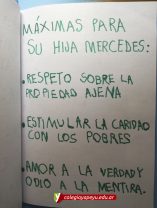 MÁXIMAS PARA
SU HIJA MERCEDES:
• RESPETO SOBRE LA
PROPIEDAD AJENA
• ESTIMULAR LA CARIDAD
CON LOS POBRES
• AMOR A LA VERDAD Y
ODIO A LA MENTIRA.
colegioyapeyu.edu.ar